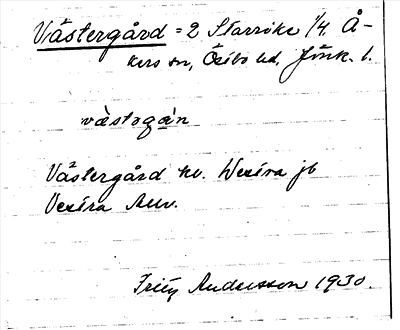 Västergård = 2 Starrike 1/4. Å-
kers sn, Östbo hd. Jönk. l.
västəgán
Västergård hv. Wexira jb
Vexira Auv.
Fritz Andersson 1930.